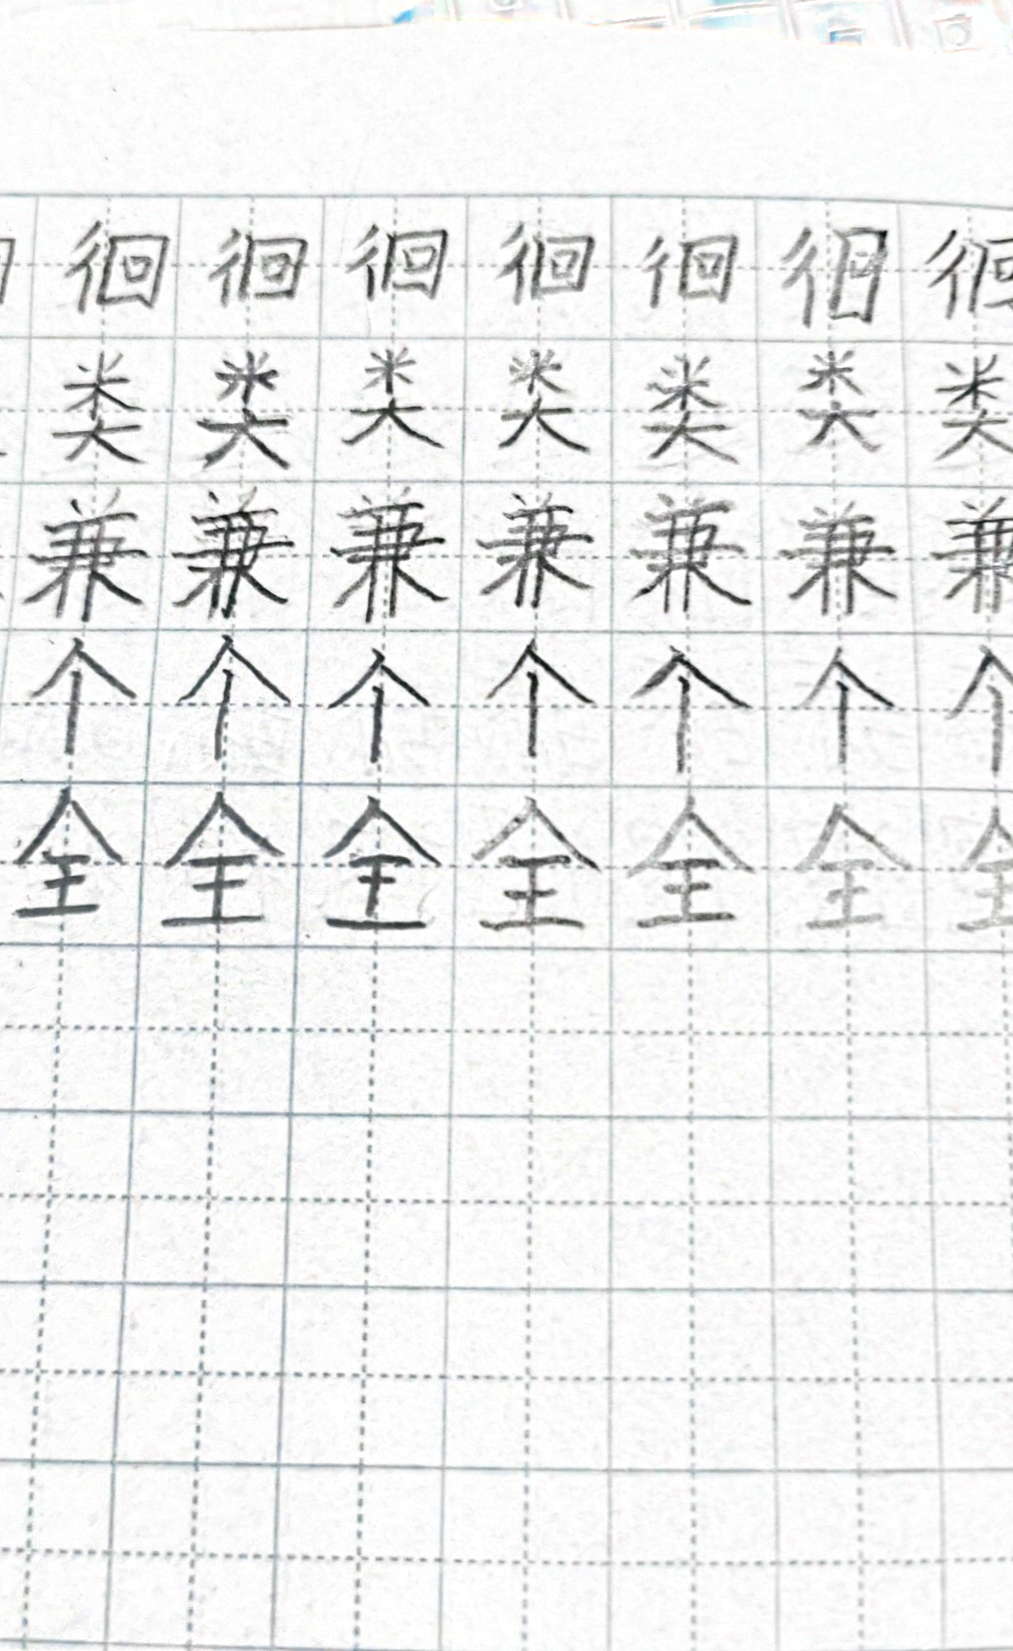 徊徊徊徊徊徊徊
类类类类类类类
兼兼兼兼兼兼兼
个个个个个个个
全全全全全全全